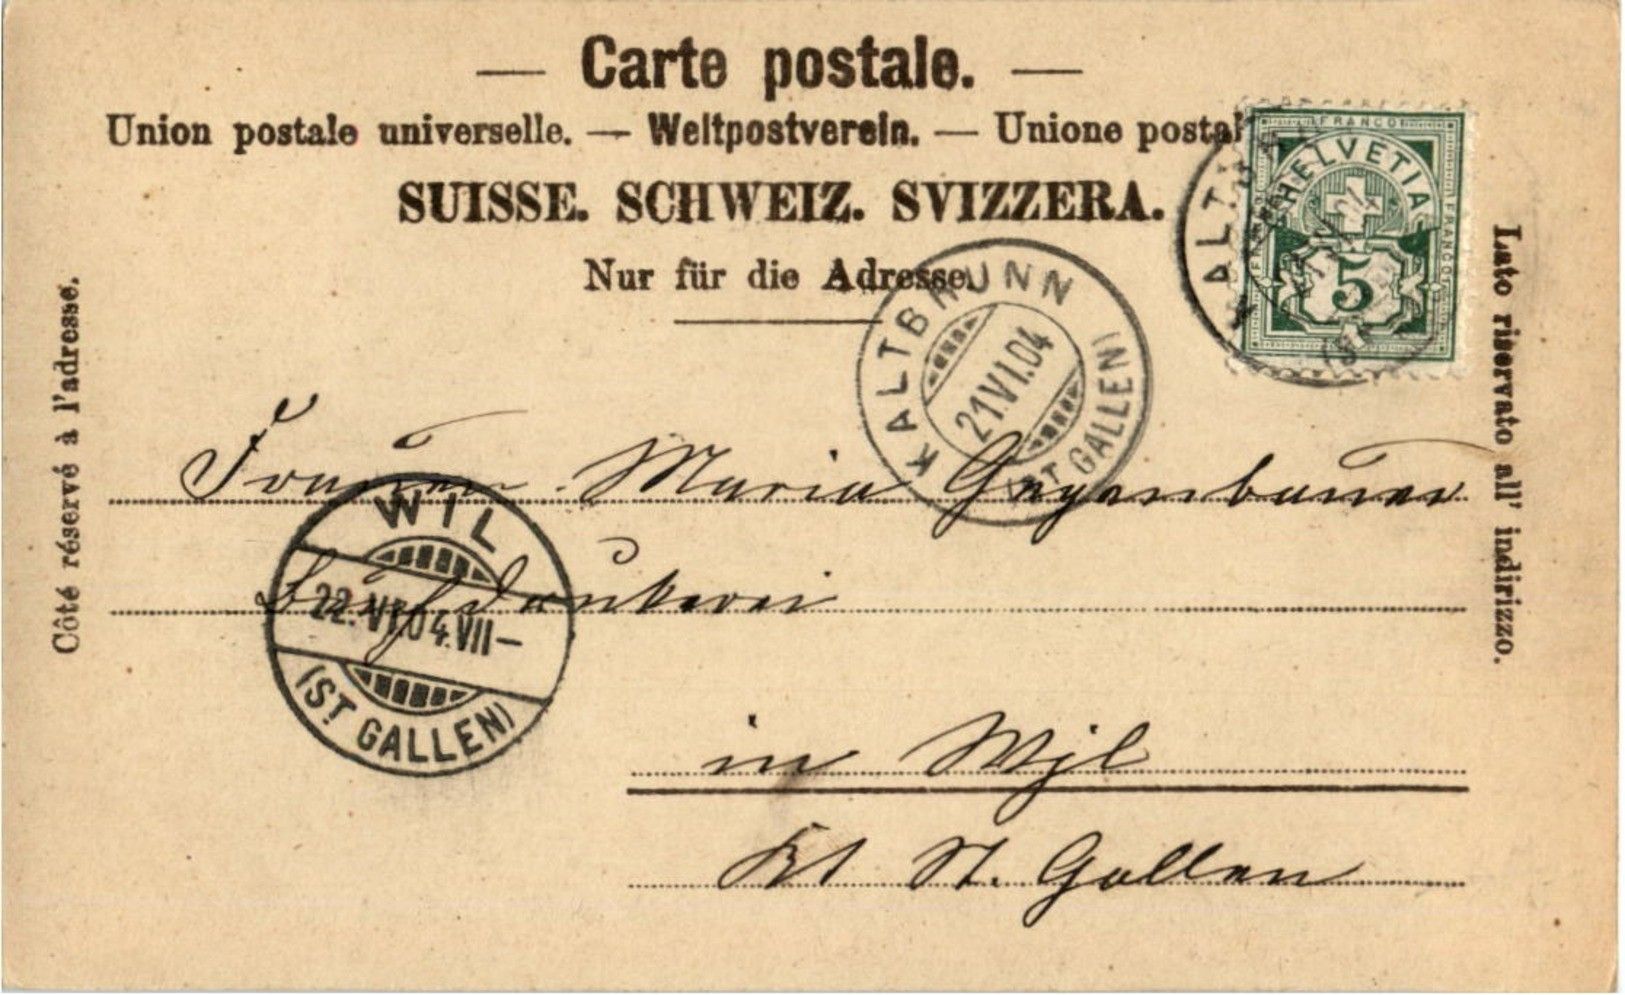 — Carte postale. —
Union postale universelle. — Weltpostverein. — Unione postal
SUISSE. SCHWEIZ. SVIZZERA.
Nur für die Adresse.
Côté réservé à l'adresse.
Lato riservato all' indirizzo.
FRANCO
HELVETIA
5
KALTBRUNN
21.VI.04
(ST GALLEN)
Maria Gegenbauer
WIL
22.VI.04.VII—
(ST GALLEN)
Buchdruckerei
in Wyl
Kt St. Gallen